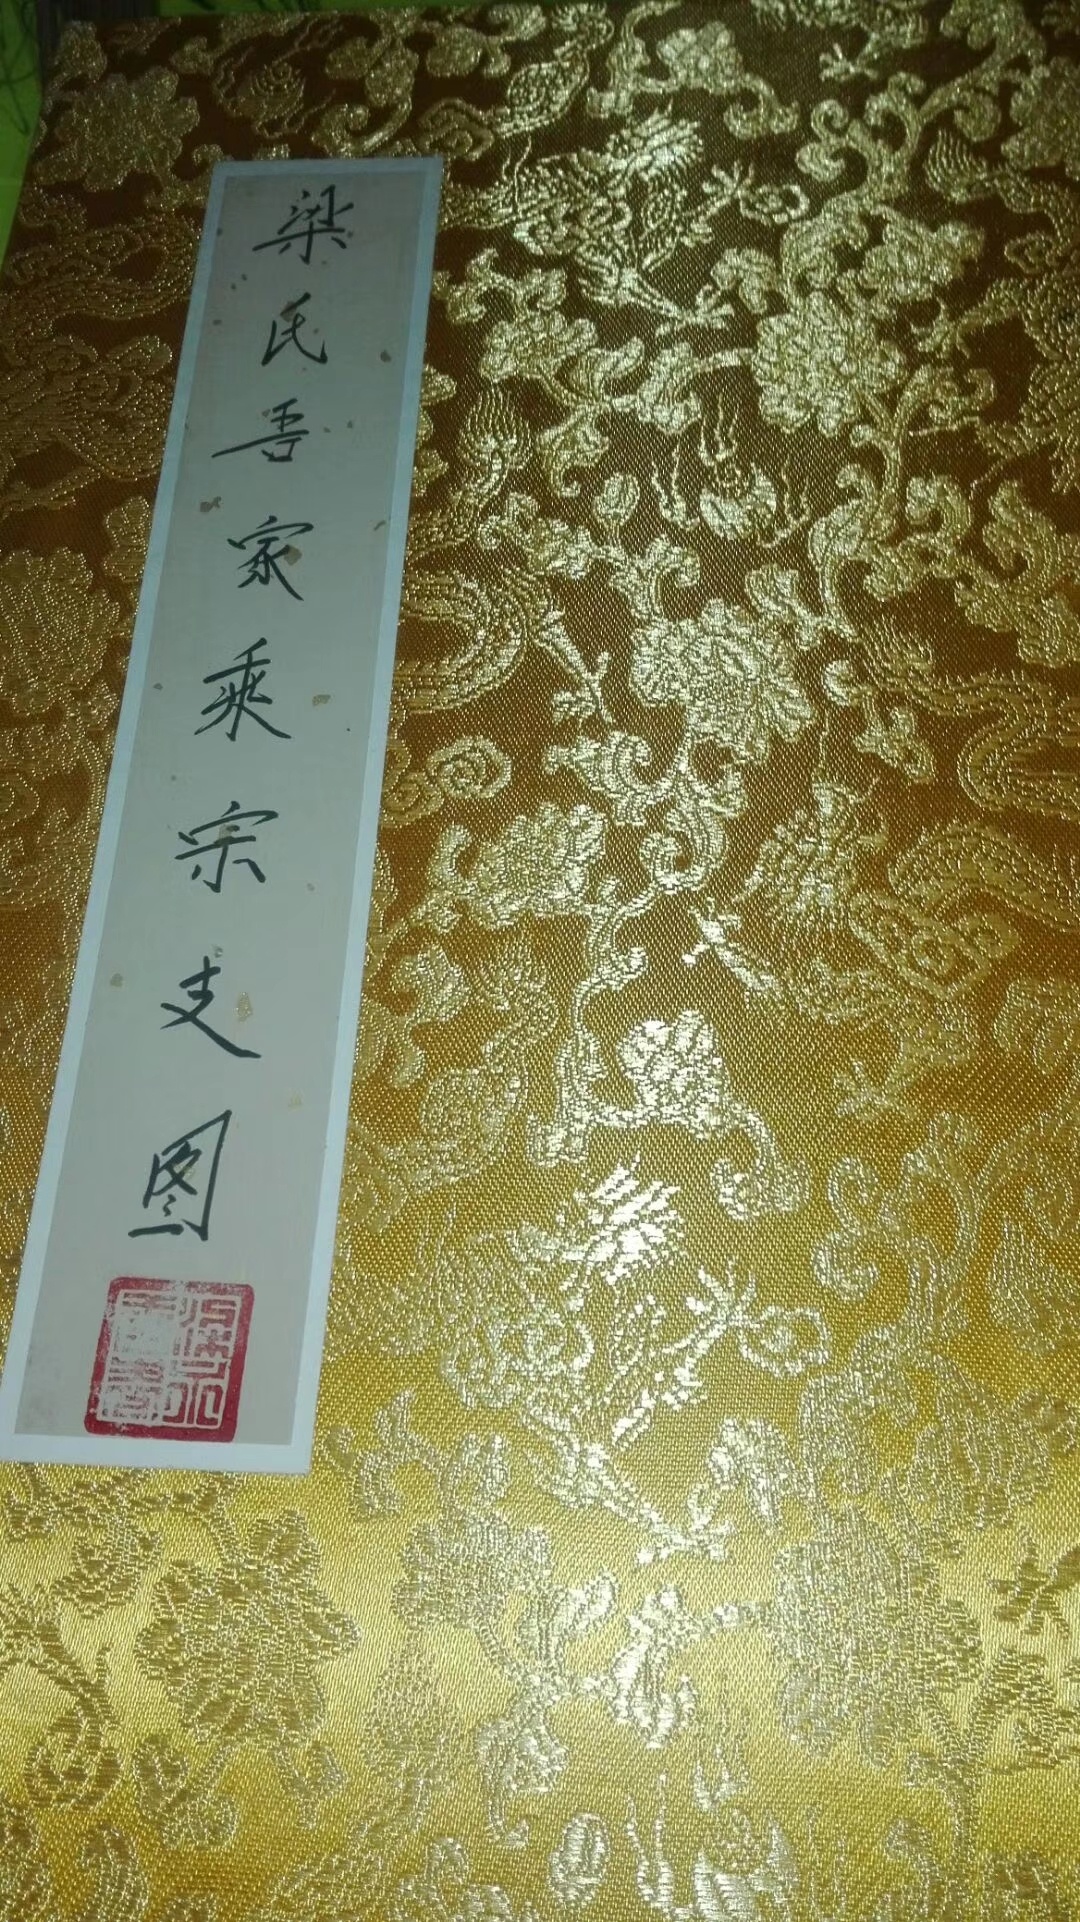 梁氏吾家乘宗支图